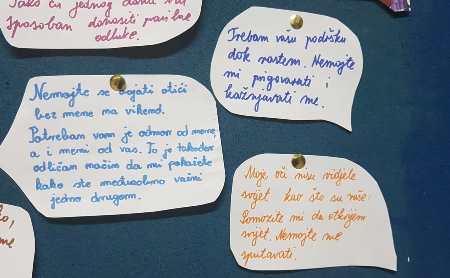 Tako ću jednog dana biti
sposoban donositi pravilne
odluke.
Trebam vašu podršku
dok rastem. Nemojte
mi prigovarati i
kažnjavati me.
Nemojte se bojati otići
bez mene na vikend.
Potreban vam je odmor od mene,
a i meni od vas. To je također
odličan način da mi pokažete
kako ste međusobno važni
jedno drugom.
Moje oči nisu vidjele
svijet kao što su vaše.
Pomozite mi da otkrijem
svijet. Nemojte me
sputavati.
me